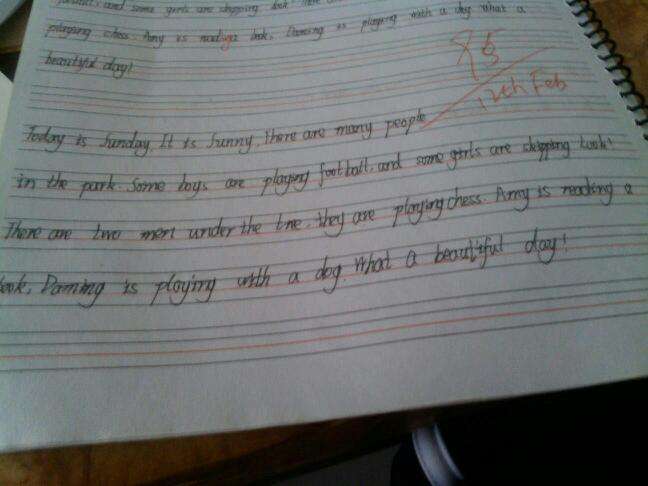 and some girls are skipping look!
playing chess. Amy is reading a book, Daming is playing with a dog what a
beautiful day!
95
12th Feb
Today is Sunday. It is Sunny. There are many people
in the park. Some boys are playing football, and some girls are skipping Look!
There are two men under the tree. they are playing chess. Amy is reading a
book, Daming is playing with a dog. What a beautiful day!